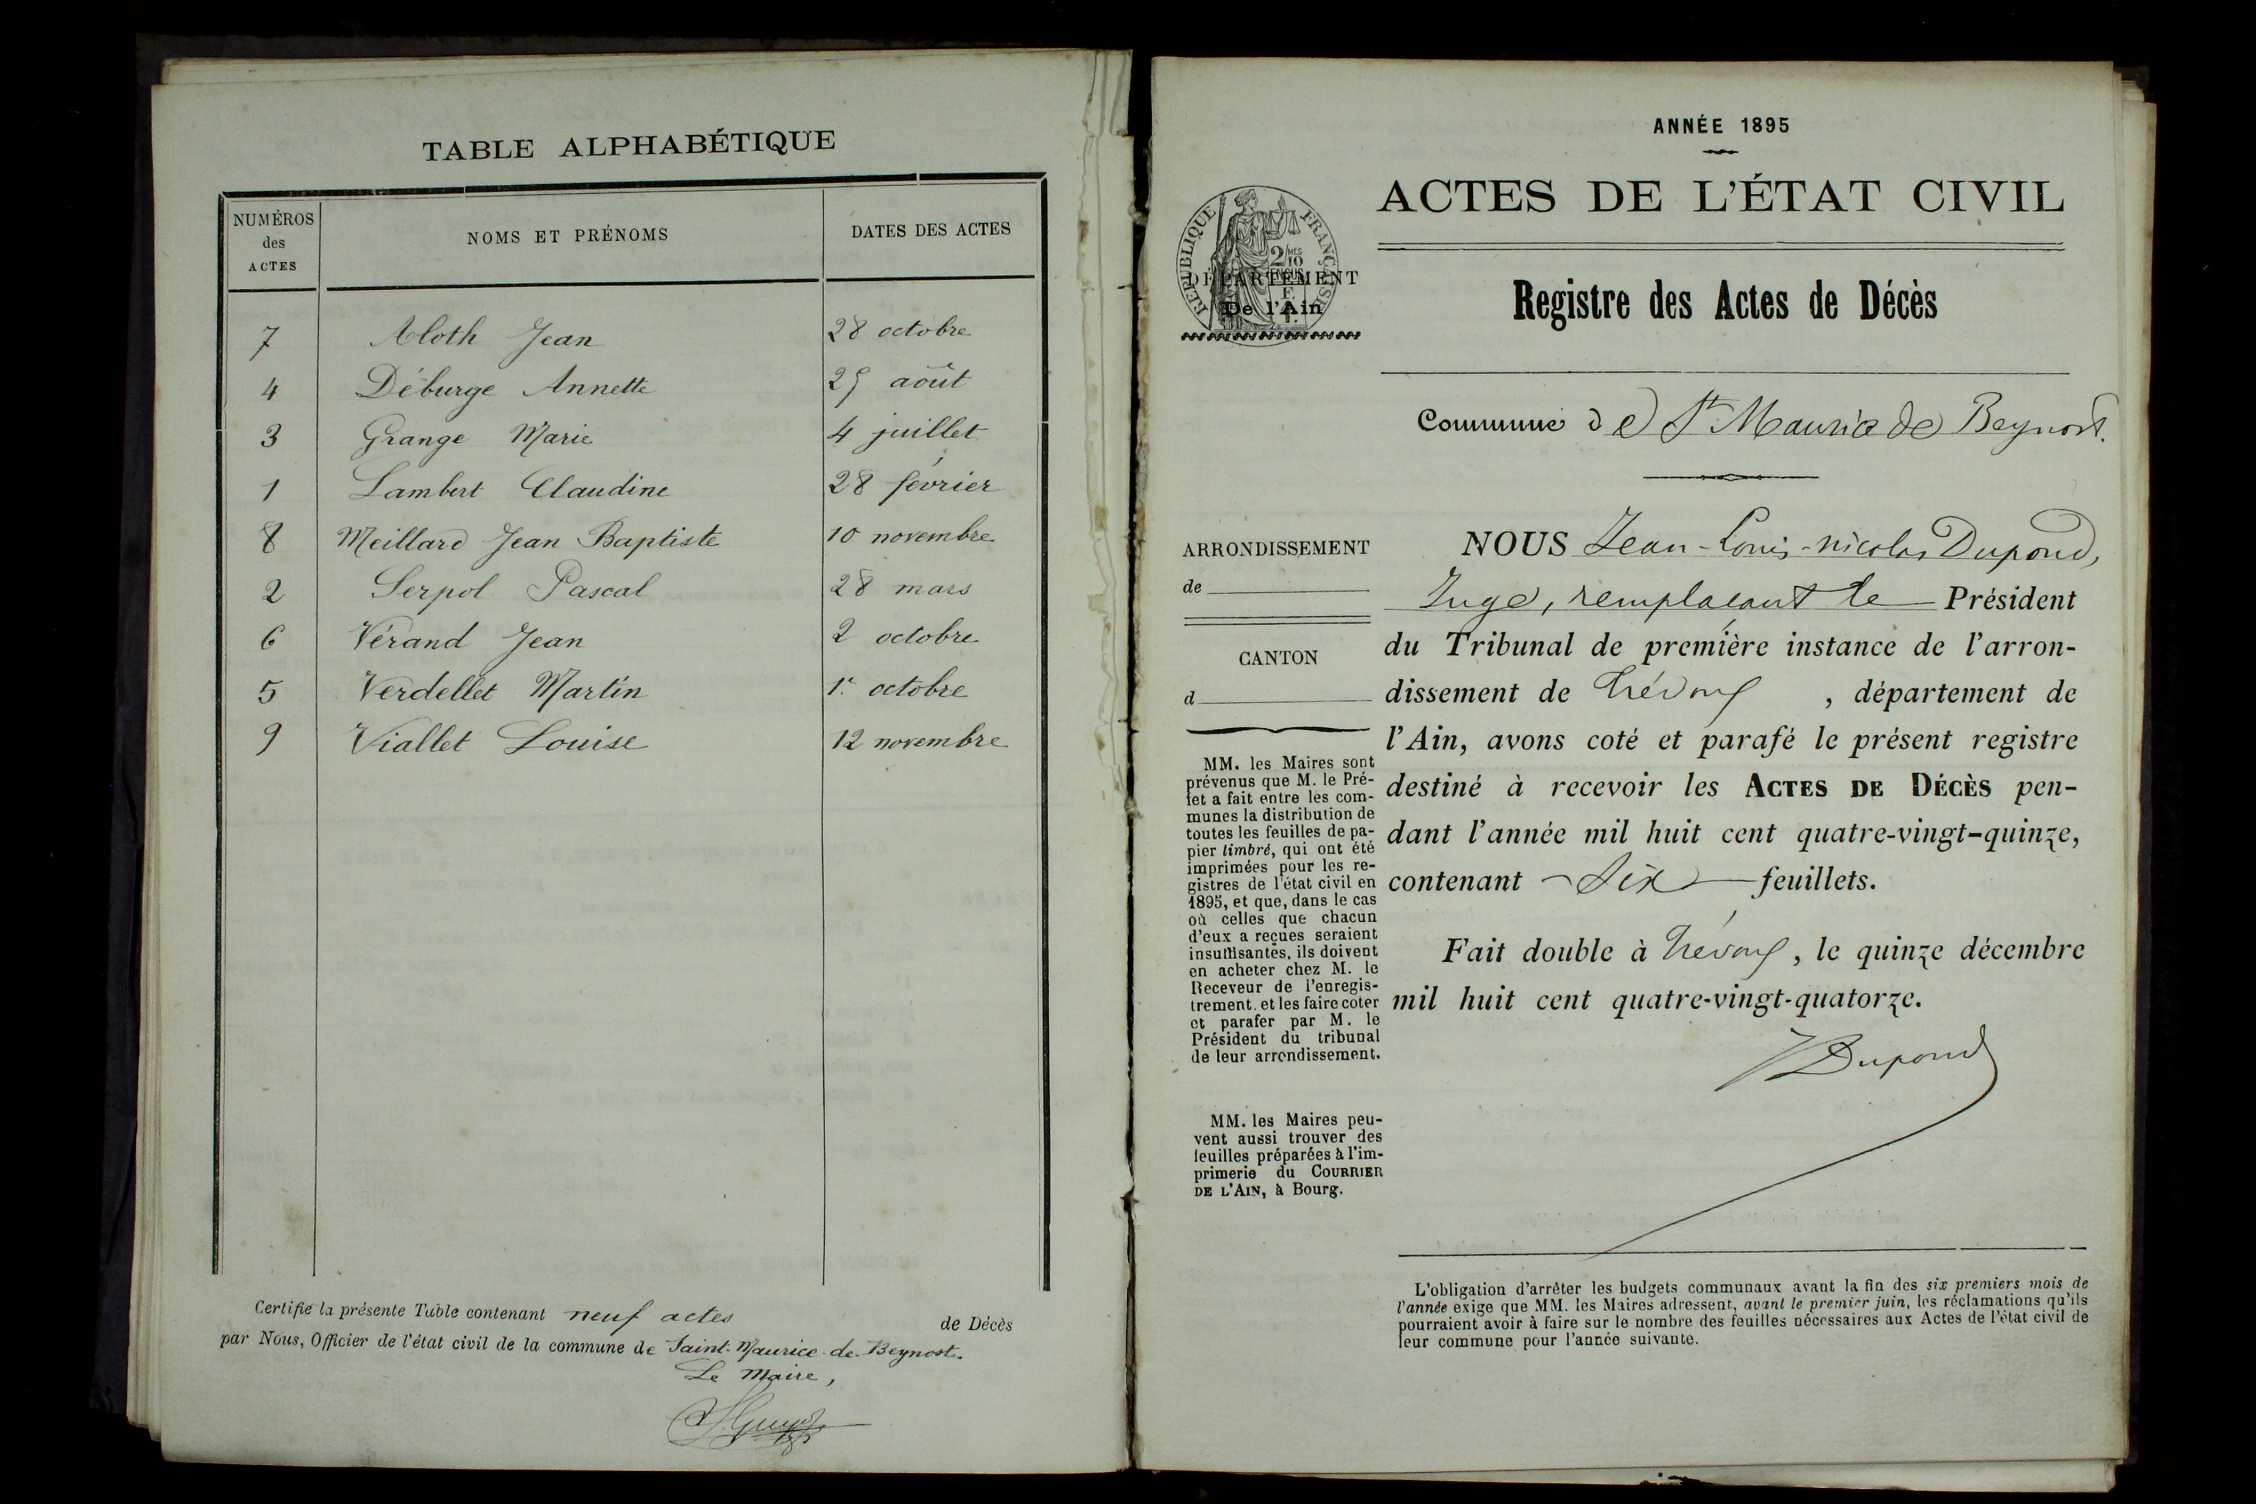 TABLE ALPHABÉTIQUE
NUMÉROS
des
ACTES
NOMS ET PRÉNOMS
DATES DES ACTES
7 Cloth Jean 28 octobre
4 Déburge Annette 25 août
3 Grange Marie 4 juillet
1 Lambert Claudine 28 février
8 Meillard Jean Baptiste 10 novembre
2 Serpol Pascal 28 mars
6 Vérand Jean 2 octobre
5 Verdellet Martin 1r. octobre
9 Viallet Louise 12 novembre
Certifie la présente Table contenant neuf actes de Décès
par Nous, Officier de l'état civil de la commune de Saint-Maurice-de-Beynost.
Le Maire,
ANNÉE 1895
ACTES DE L'ÉTAT CIVIL
RÉPUBLIQUE FRANÇAISE
DÉPARTEMENT
De l'Ain
Registre des Actes de Décès
Commune de St Maurice de Beynost.
ARRONDISSEMENT
de
CANTON
d
MM. les Maires sont
prévenus que M. le Pré-
fet a fait entre les com-
munes la distribution de
toutes les feuilles de pa-
pier timbré, qui ont été
imprimées pour les re-
gistres de l'état civil en
1895, et que, dans le cas
où celles que chacun
d'eux a reçues seraient
insuffisantes, ils doivent
en acheter chez M. le
Receveur de l'enregis-
trement, et les faire coter
et parafer par M. le
Président du tribunal
de leur arrondissement.
MM. les Maires peu-
vent aussi trouver des
feuilles préparées à l'im-
primerie du COURRIER
DE L'AIN, à Bourg.
NOUS Jean-Louis-Nicolas Dupond,
Juge, remplaçant le Président
du Tribunal de première instance de l'arron-
dissement de Trévoux, département de
l'Ain, avons coté et parafé le présent registre
destiné à recevoir les ACTES DE DÉCÈS pen-
dant l'année mil huit cent quatre-vingt-quinze,
contenant six feuillets.
Fait double à Trévoux, le quinze décembre
mil huit cent quatre-vingt-quatorze.
Dupond
L'obligation d'arrêter les budgets communaux avant la fin des six premiers mois de
l'année exige que MM. les Maires adressent, avant le premier juin, les réclamations qu'ils
pourraient avoir à faire sur le nombre des feuilles nécessaires aux Actes de l'état civil de
leur commune pour l'année suivante.